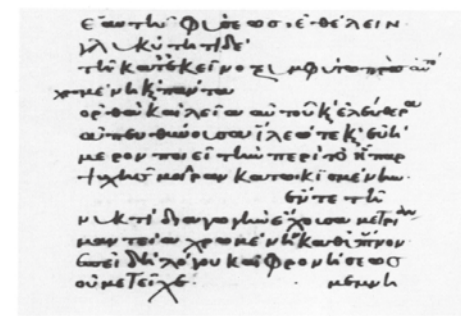 ἑαυτῆς φύσεως· ἐθέλειν
γλυκύτητι δὲ
τῆι κατ' ἐκεῖνο ξυμφύτω πρὸς αὐτὸ
χρωμένη κ̀ πάντα
ὀρθὰ καὶ λεῖα αὐτοῦ κ̀ ἐλεύθερα
ἀπευθύνουσα ἵλεώ τε κ̀ εὐή
μερον ποιεῖ τὴν περὶ τὸ ἧπαρ
ψυχῆς μοῖραν κατωκισμένην
ἔν τε τῆ
νυκτὶ διαγωγὴν ἔχουσαν μετρίαν
μαντεία χρωμένην καθ' ὕπνον
ἐπειδὴ λόγου καὶ φρονήσεως
οὐ μετεῖχε· μεμνη